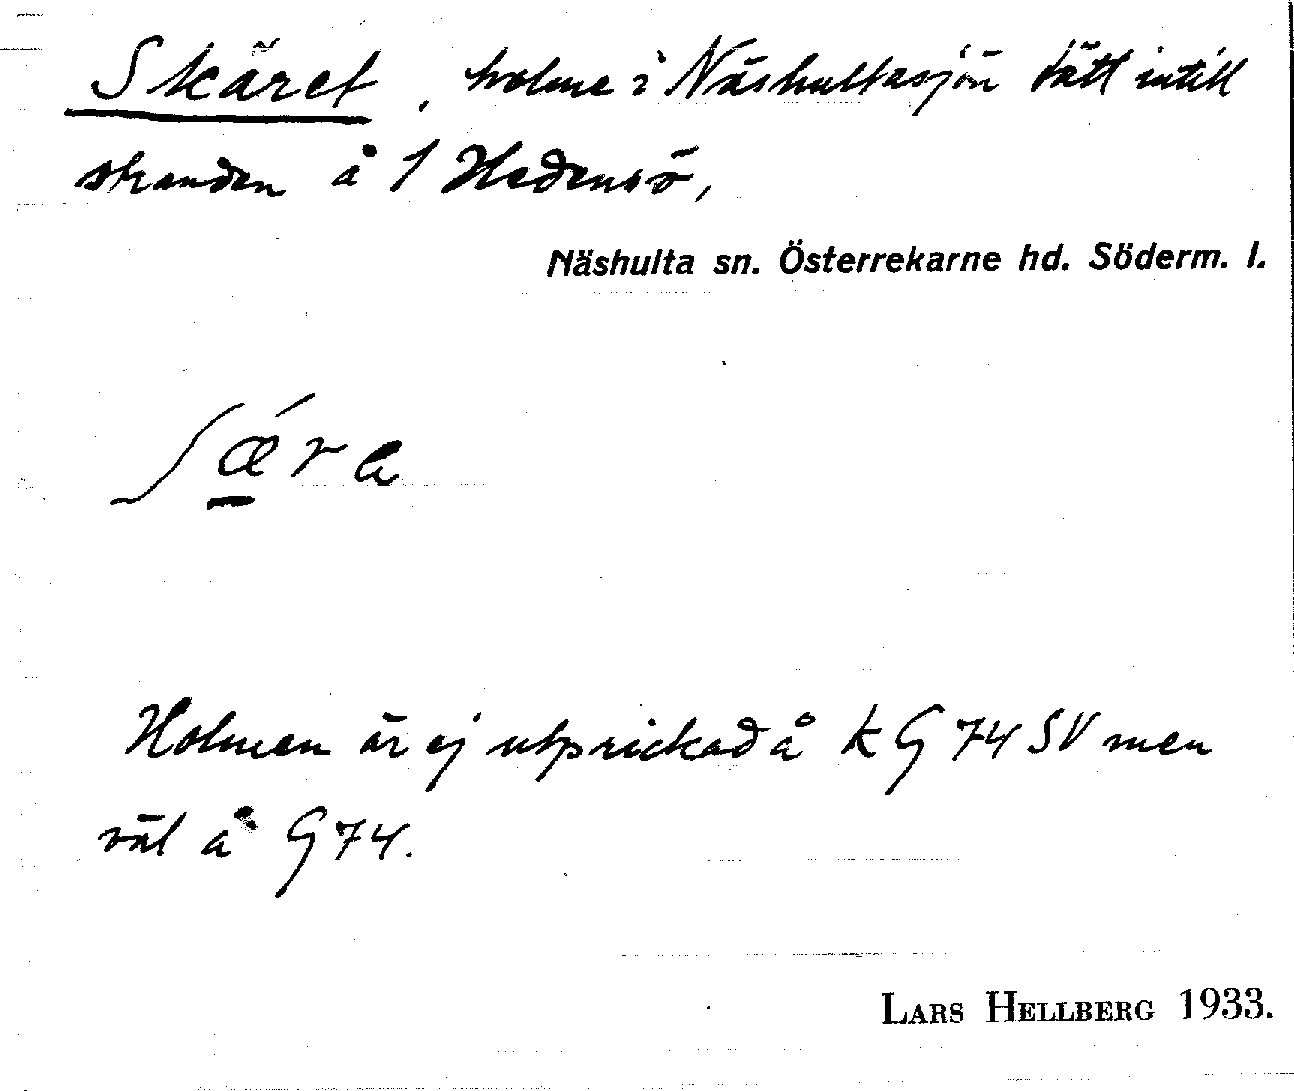 Skäret, holme i Näshultasjön tätt intill
stranden å 1 Hedensö,
Näshulta sn. Österrekarne hd. Söderm. l.
ʃǽra
Holmen är ej utprickad å k G 74 SV men
väl å G 74.
LARS HELLBERG 1933.